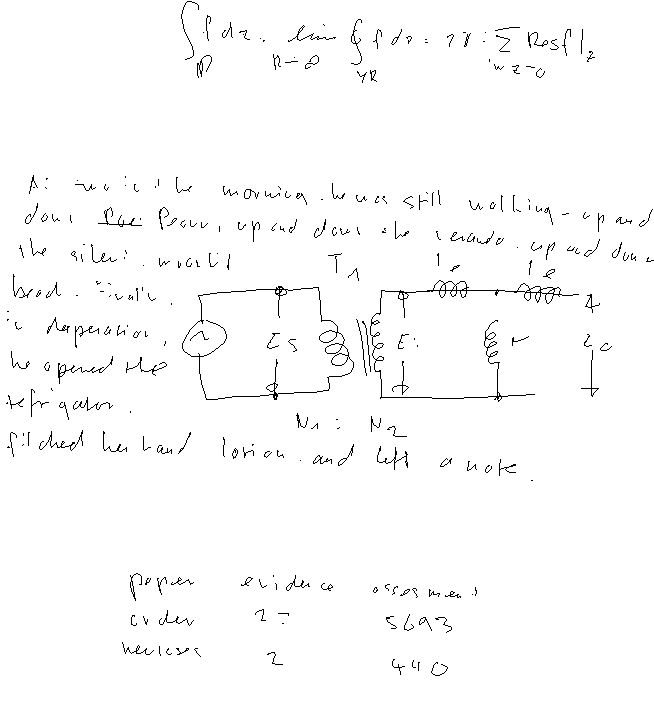 ∫ f dz = lim ∮ f dz = 2π i ∑ Res f|z
R R→∞ γR im z>0
in the morning, he was still walking - up and
down, up and down the veranda, up and down
the silent, moonlit
beach. Finally,
in desperation,
he opened the
refrigator.
filched her hand lotion, and left a note.
T1 le le
Es Ei
N1 : N2
paper evidence assesment
order 27 5693
2 440